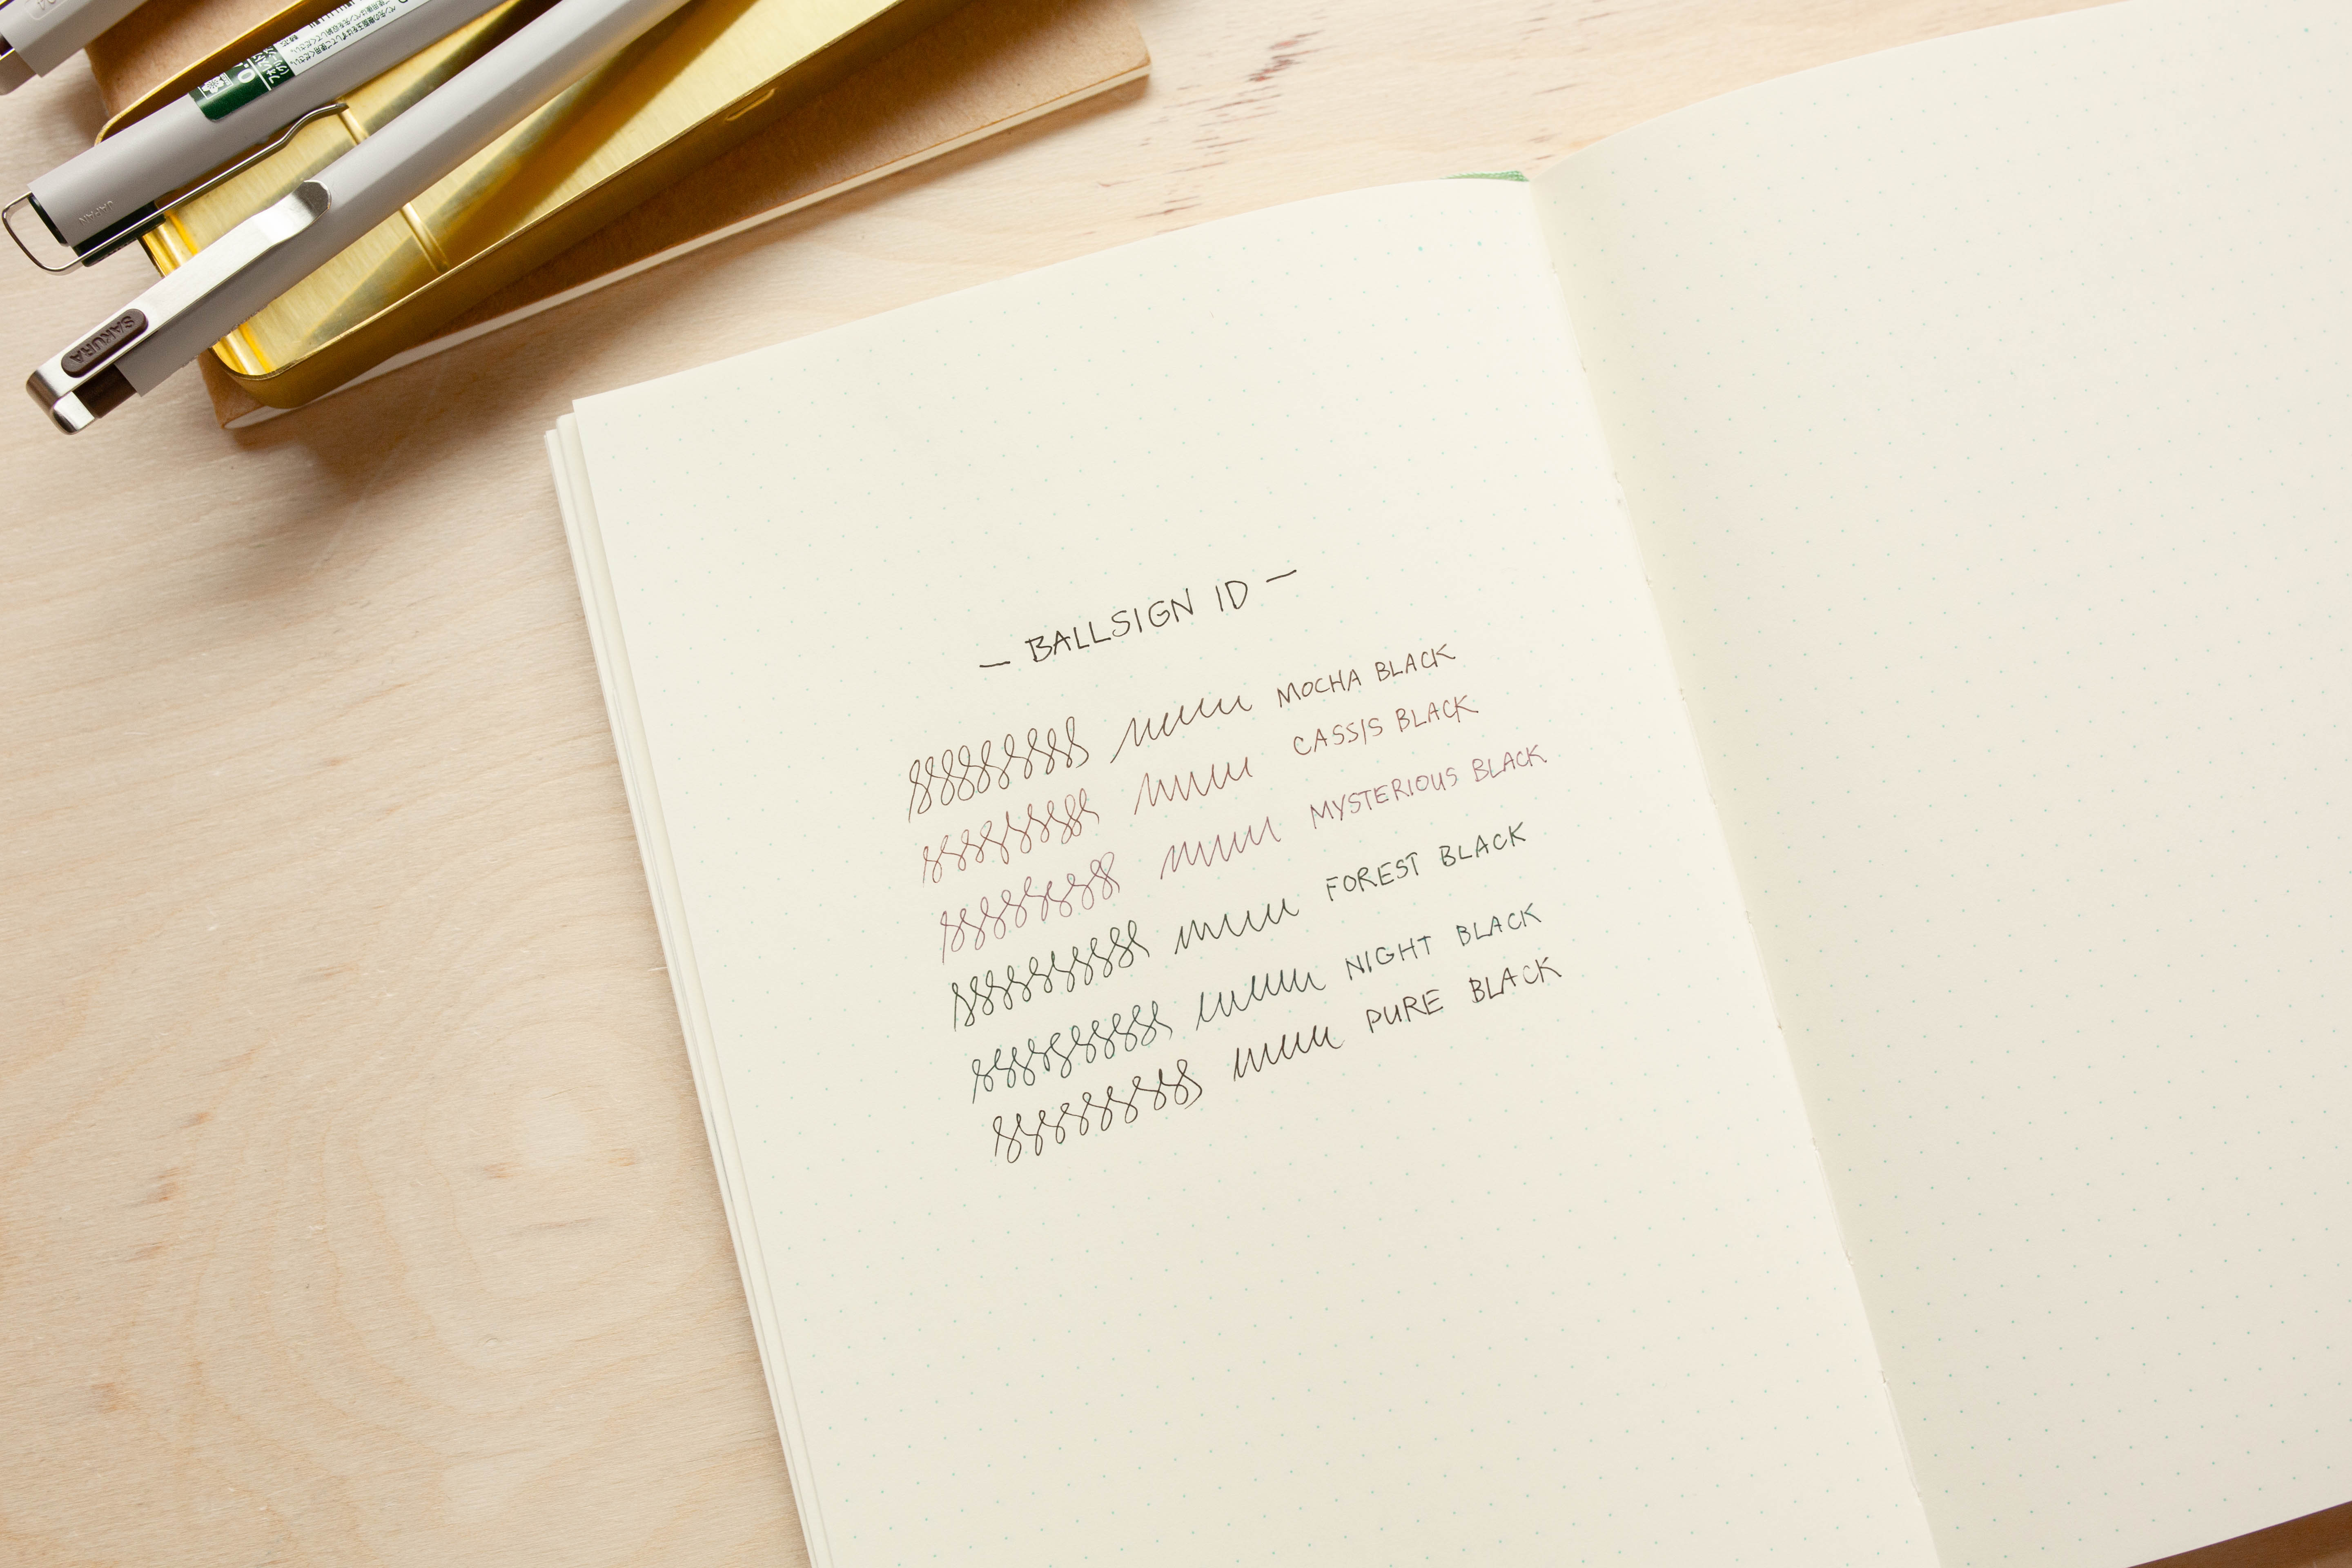 SAKURA
JAPAN
— BALLSIGN ID —
MOCHA BLACK
CASSIS BLACK
MYSTERIOUS BLACK
FOREST BLACK
NIGHT BLACK
PURE BLACK